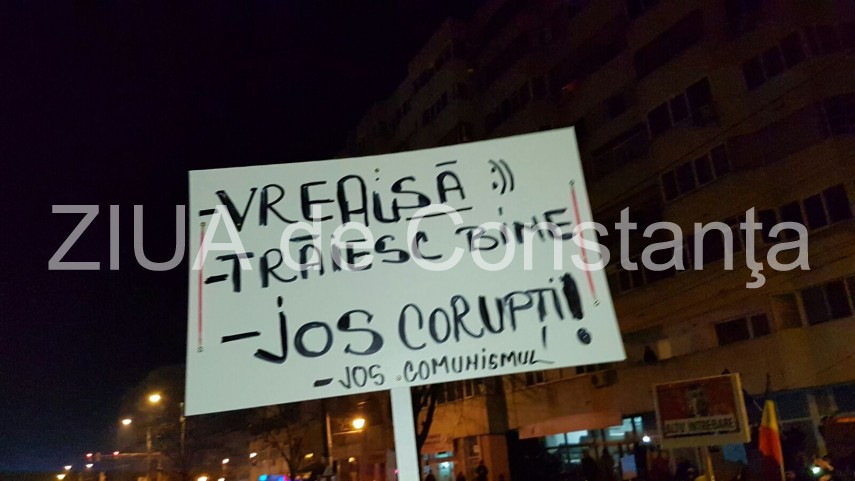 -VREAU SĂ :))
-TRĂIESC BINE
-JOS CORUPȚII!
-JOS COMUNISMUL
ZIUA de Constanţa
ALTĂ ÎNTREBARE